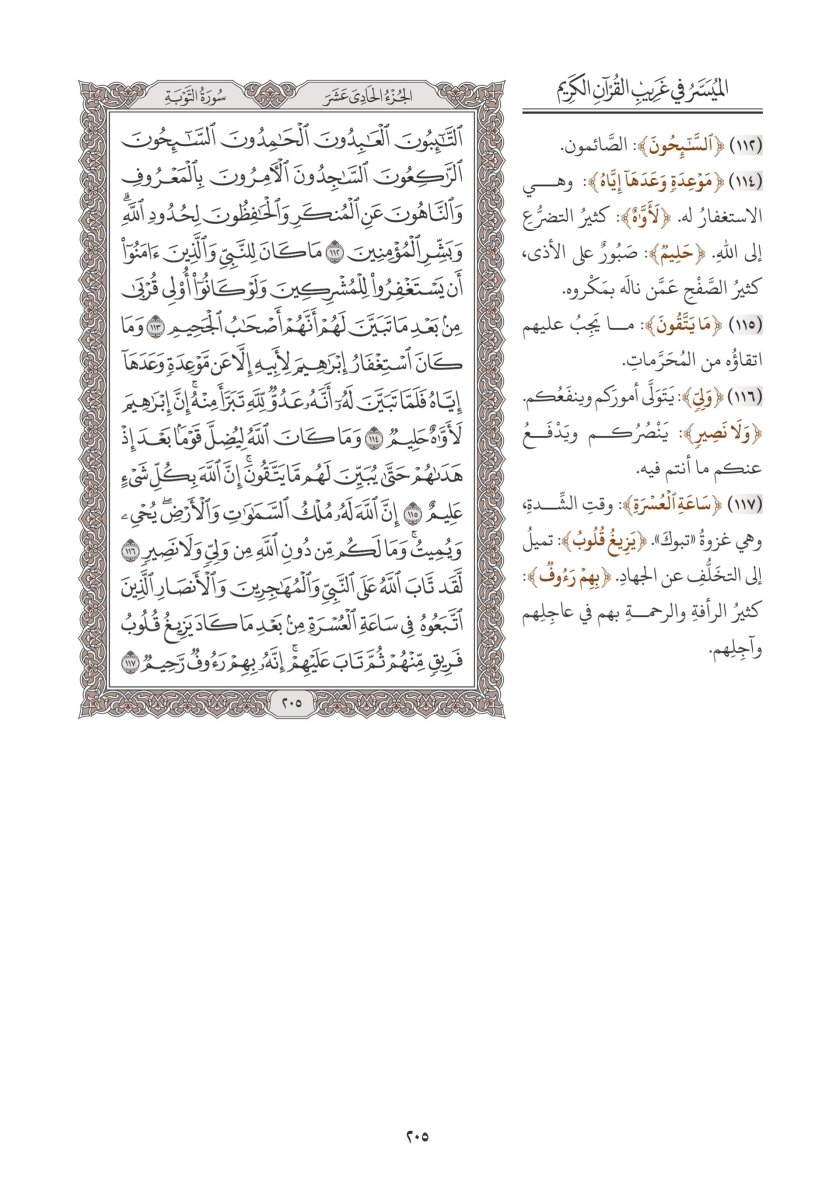 الميسر في غريب القرآن الكريم
(١١٢) ﴿ٱلسَّٰٓئِحُونَ﴾: الصَّائمون.
(١١٤) ﴿مَوْعِدَةٖ وَعَدَهَآ إِيَّاهُ﴾: وهي
الاستغفارُ له. ﴿لَأَوَّٰهٌ﴾: كثيرُ التضرُّعِ
إلى اللهِ. ﴿حَلِيمٞ﴾: صَبُورٌ على الأذى،
كثيرُ الصَّفْحِ عَمَّن نالَه بمَكْروه.
(١١٥) ﴿مَا يَتَّقُونَ﴾: ما يَجِبُ عليهم
اتقاؤُه من المُحَرَّماتِ.
(١١٦) ﴿وَلِيّٖ﴾: يَتَولَّى أمورَكم وينفَعُكم.
﴿وَلَا نَصِيرٖ﴾: يَنْصُرُكم ويَدْفَعُ
عنكم ما أنتم فيه.
(١١٧) ﴿سَاعَةِ ٱلْعُسْرَةِ﴾: وقتِ الشِّدةِ،
وهي غزوةُ «تبوكَ». ﴿يَزِيغُ قُلُوبُ﴾: تميلُ
إلى التخلُّفِ عن الجهادِ. ﴿بِهِمْ رَءُوفٞ﴾:
كثيرُ الرأفةِ والرحمةِ بهم في عاجِلِهم
وآجِلِهم.
الجُزْءُ الحَادِي عَشَرَ
سُورَةُ التَّوْبَةِ
ٱلتَّٰٓئِبُونَ ٱلْعَٰبِدُونَ ٱلْحَٰمِدُونَ ٱلسَّٰٓئِحُونَ
ٱلرَّٰكِعُونَ ٱلسَّٰجِدُونَ ٱلْأٓمِرُونَ بِٱلْمَعْرُوفِ
وَٱلنَّاهُونَ عَنِ ٱلْمُنكَرِ وَٱلْحَٰفِظُونَ لِحُدُودِ ٱللَّهِۗ
وَبَشِّرِ ٱلْمُؤْمِنِينَ ١١٢ مَا كَانَ لِلنَّبِيِّ وَٱلَّذِينَ ءَامَنُوٓاْ
أَن يَسْتَغْفِرُواْ لِلْمُشْرِكِينَ وَلَوْ كَانُوٓاْ أُوْلِي قُرْبَىٰ
مِنۢ بَعْدِ مَا تَبَيَّنَ لَهُمْ أَنَّهُمْ أَصْحَٰبُ ٱلْجَحِيمِ ١١٣ وَمَا
كَانَ ٱسْتِغْفَارُ إِبْرَٰهِيمَ لِأَبِيهِ إِلَّا عَن مَّوْعِدَةٖ وَعَدَهَآ
إِيَّاهُ فَلَمَّا تَبَيَّنَ لَهُۥٓ أَنَّهُۥ عَدُوّٞ لِّلَّهِ تَبَرَّأَ مِنْهُۚ إِنَّ إِبْرَٰهِيمَ
لَأَوَّٰهٌ حَلِيمٞ ١١٤ وَمَا كَانَ ٱللَّهُ لِيُضِلَّ قَوْمَۢا بَعْدَ إِذْ
هَدَىٰهُمْ حَتَّىٰ يُبَيِّنَ لَهُم مَّا يَتَّقُونَۚ إِنَّ ٱللَّهَ بِكُلِّ شَيْءٍ
عَلِيمٌ ١١٥ إِنَّ ٱللَّهَ لَهُۥ مُلْكُ ٱلسَّمَٰوَٰتِ وَٱلْأَرْضِۖ يُحْيِۦ
وَيُمِيتُۚ وَمَا لَكُم مِّن دُونِ ٱللَّهِ مِن وَلِيّٖ وَلَا نَصِيرٖ ١١٦
لَّقَد تَّابَ ٱللَّهُ عَلَى ٱلنَّبِيِّ وَٱلْمُهَٰجِرِينَ وَٱلْأَنصَارِ ٱلَّذِينَ
ٱتَّبَعُوهُ فِي سَاعَةِ ٱلْعُسْرَةِ مِنۢ بَعْدِ مَا كَادَ يَزِيغُ قُلُوبُ
فَرِيقٖ مِّنْهُمْ ثُمَّ تَابَ عَلَيْهِمْۚ إِنَّهُۥ بِهِمْ رَءُوفٞ رَّحِيمٞ ١١٧
٢٠٥
٢٠٥